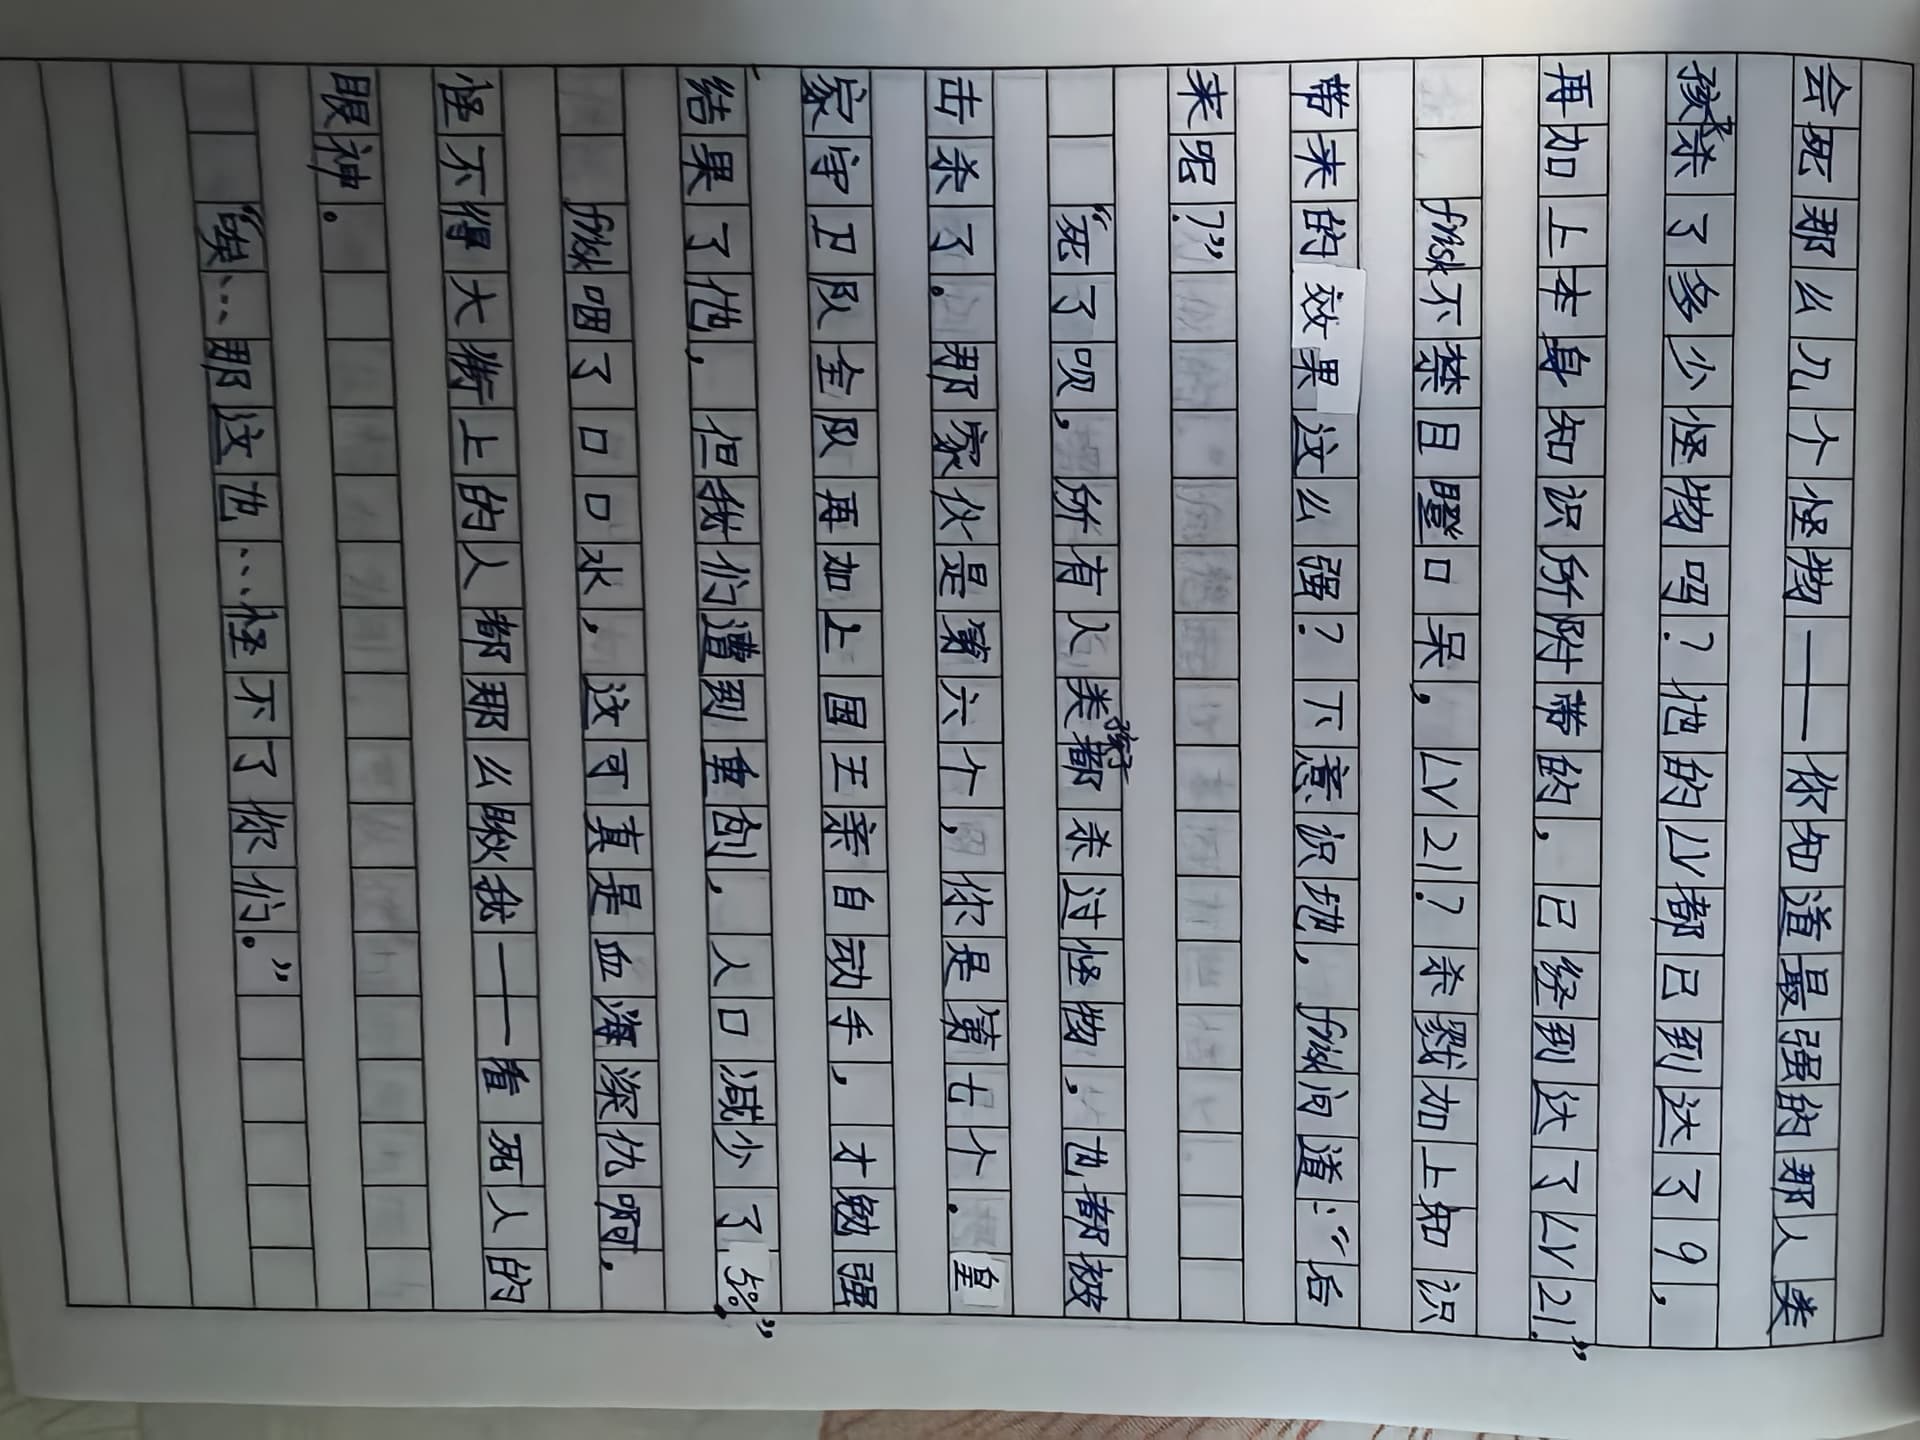 会死那么几个怪物——你知道最强的那人类
孩子杀了多少怪物吗？他的LV都已到达了9，
再加上本身知识所附带的，已经到达了LV21.”
frisk不禁目瞪口呆，LV21？杀戮加上知识
带来的效果这么强？下意识地，frisk问道：“后
来呢？”
“死了呗，所有人类孩子都杀过怪物，也都被
击杀了。那家伙是第六个，你是第七个。皇
家守卫队全队再加上国王亲自动手，才勉强
结果了他，但我们遭到重创，人口减少了5%.”
frisk咽了口口水，这可真是血海深仇啊，
怪不得大街上的人都那么瞅我——看死人的
眼神。
“唉…那这也…怪不了你们。”